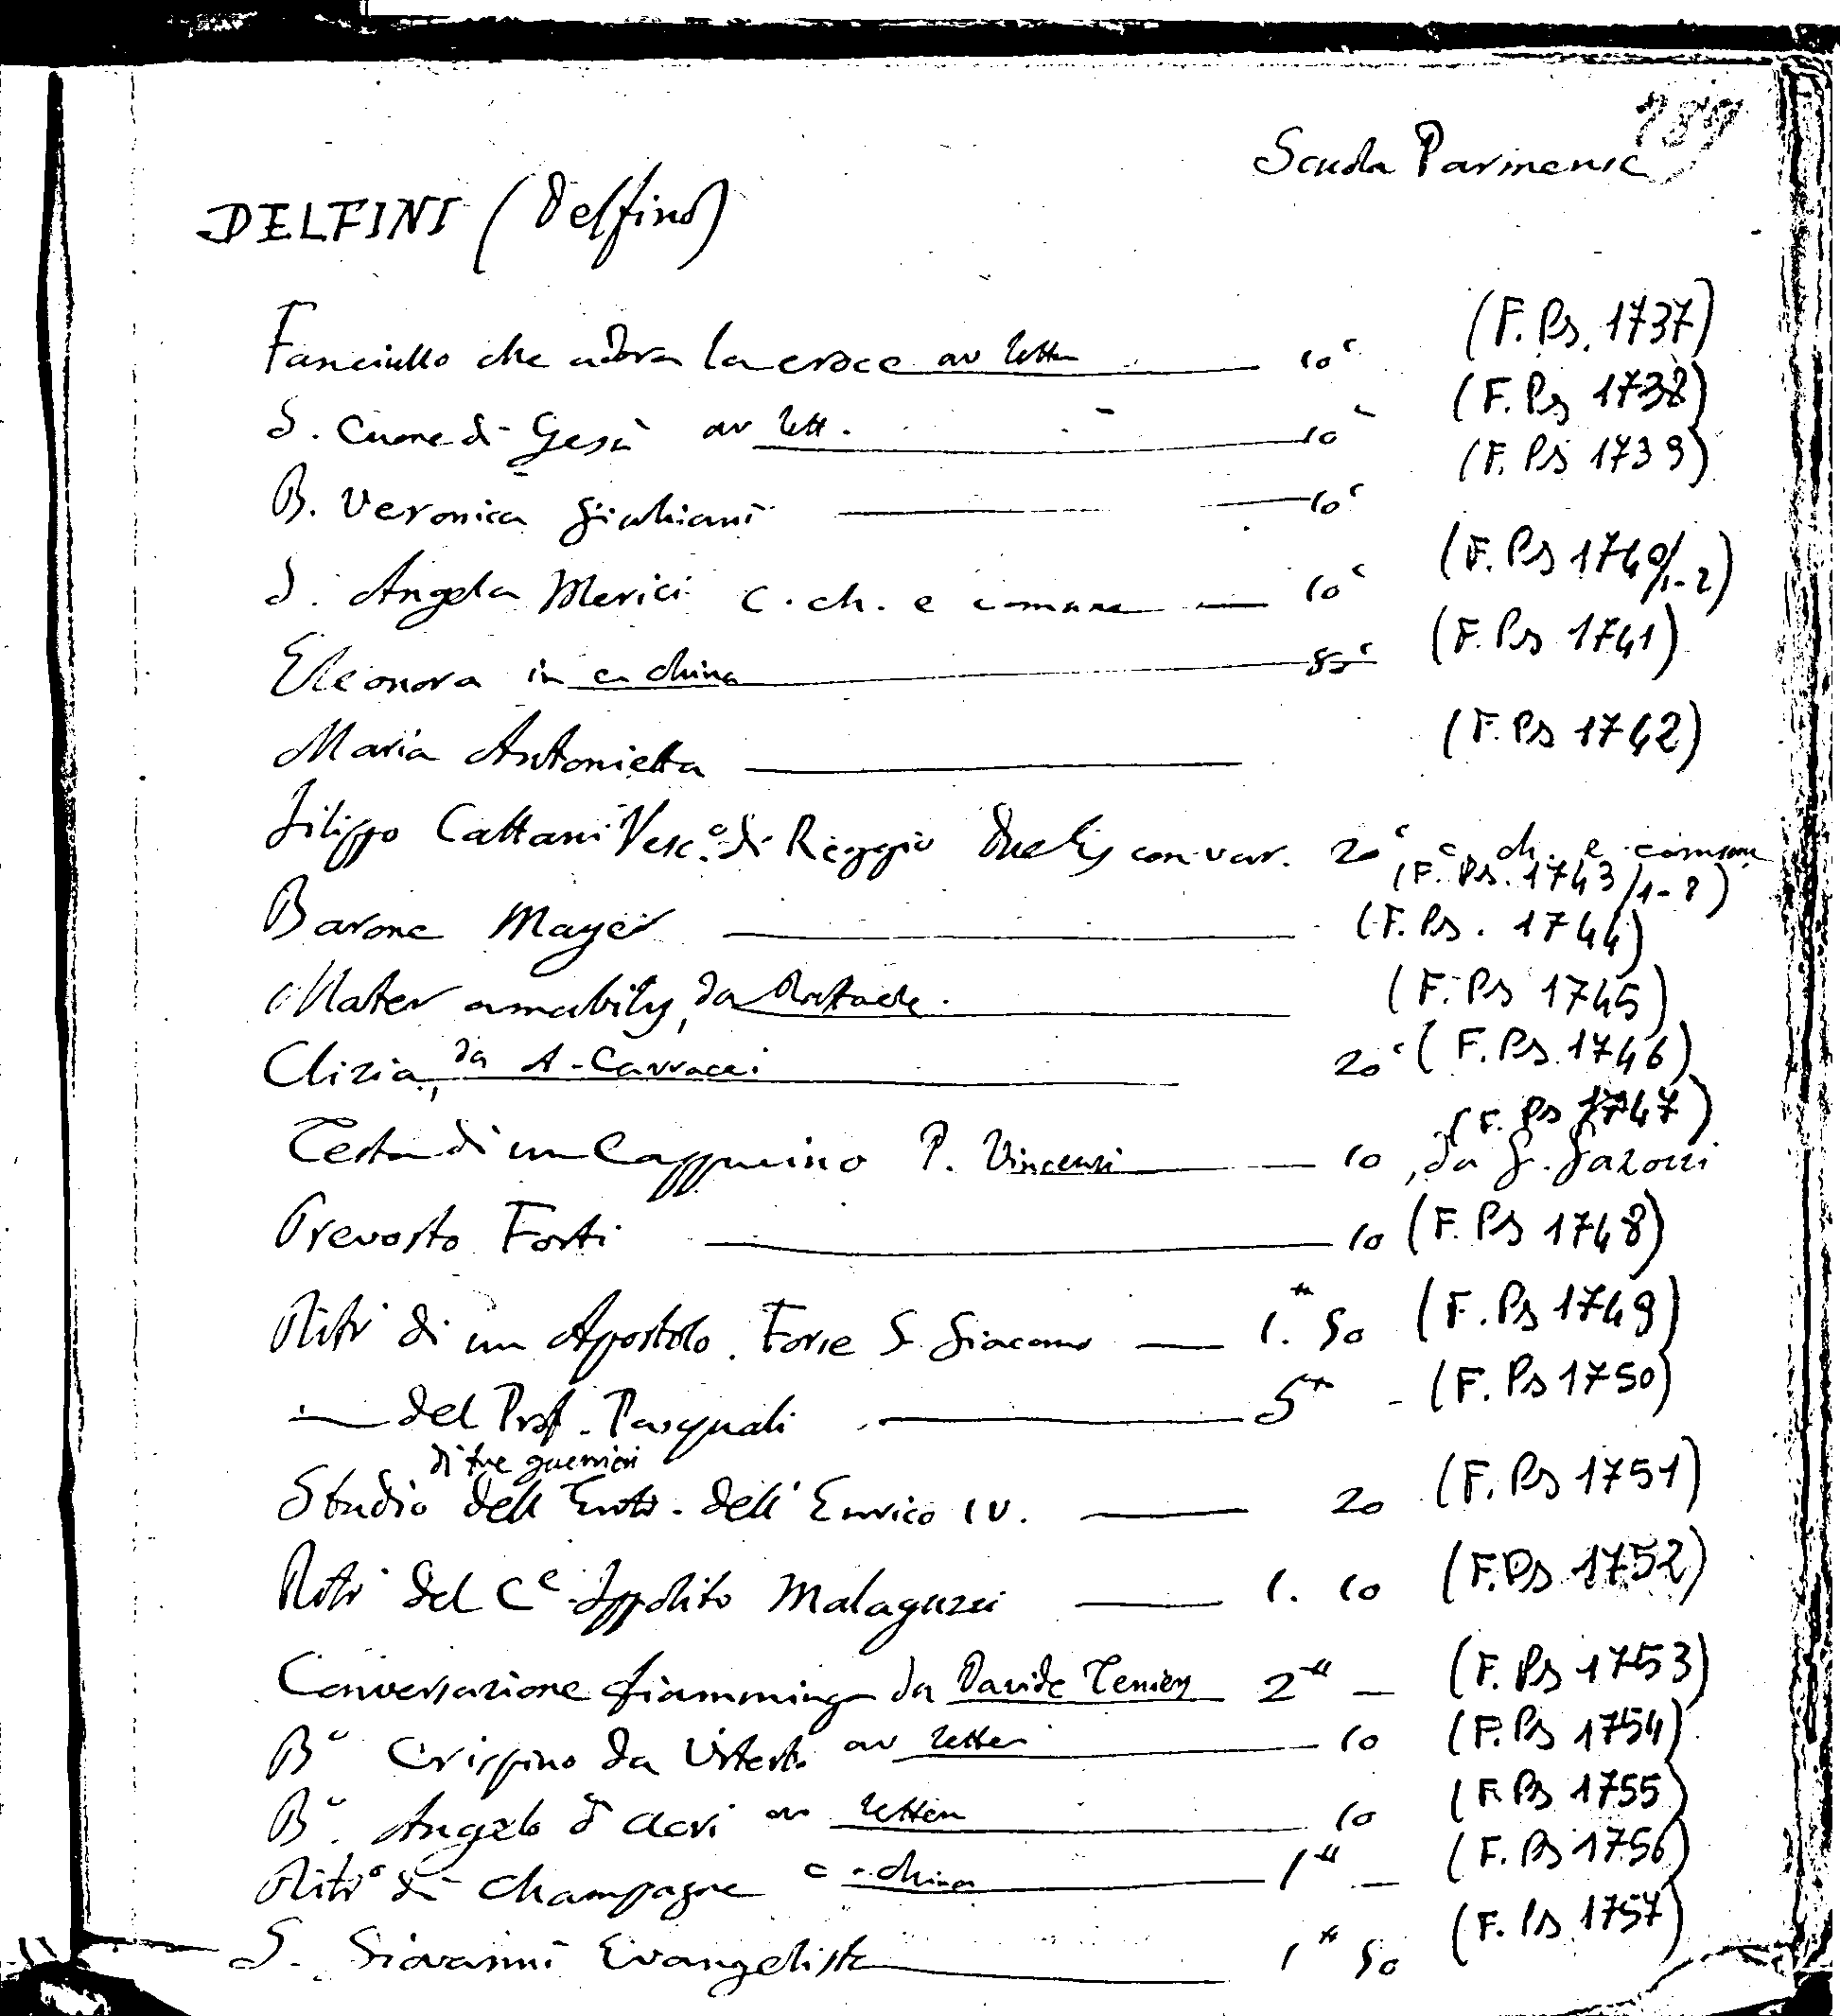 189
Scuola Parmense
DELFINI (Delfino)
Fanciullo che adora la croce av lettera 10c (F. Ps. 1737)
S. Cuore di Gesù av lett. 10c (F. Ps 1738)
B. Veronica Giuliani 10c (F. Ps 1739)
S. Angela Merici c. ch. e comune 10c (F. Ps 1740/1-2)
Eleonora in c. china (F. Ps 1741)
Maria Antonietta (F. Ps 1742)
Filippo Cattani Vesc.o di Reggio con var. 20c c. ch. e comune
(F. Ps. 1743/1-2)
Barone Mayer (F. Ps. 1744)
Mater amabilis, da Raffaele. (F. Ps 1745)
Clizia, da A. Carracci 20c (F. Ps. 1746)
(F. Ps 1747)
Testa di un Cappuccino P. Vincenzi 10, da G.
Prevosto Forti 10 (F. Ps 1748)
Ritr di un Apostolo. Forse S. Giacomo 1. 50 (F. Ps 1749)
— del Prof. Pasquali 5 - (F. Ps 1750)
di tre guerrieri
Studio dell' Entr. dell' Enrico IV. 20 (F. Ps 1751)
Ritr del Ce Ippolito Malaguzzi 1. 10 (F. Ps 1752)
Conversazione fiamminga da Davide Teniers 2 — (F. Ps 1753)
Bo Crispino da Viterbo av lettera 10 (F. Ps 1754)
Bo. Angelo d'Acri av lettera 10 (F. Ps 1755)
Ritro di Champagne c. china 1 — (F. Ps 1756)
S. Giovanni Evangelista 1 50 (F. Ps 1757)